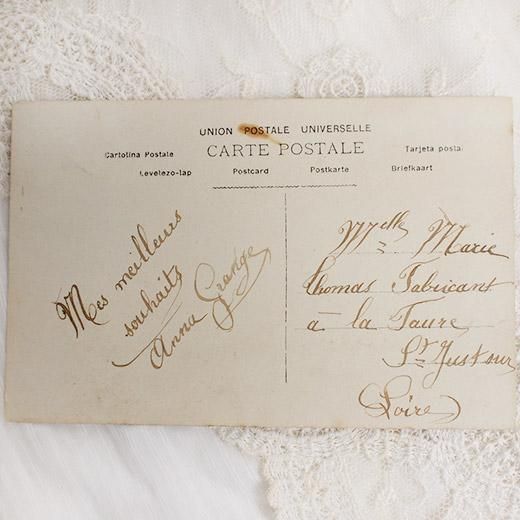 UNION POSTALE UNIVERSELLE
CARTE POSTALE
Cartolina Postale
Tarjeta postal
Levelezo-lap
Postcard
Postkarte
Briefkaart
Mes meilleurs
souhaits
Anna Grange
Melle Marie
Thomas Fabricant
à la Taure
St Just sur
Loire